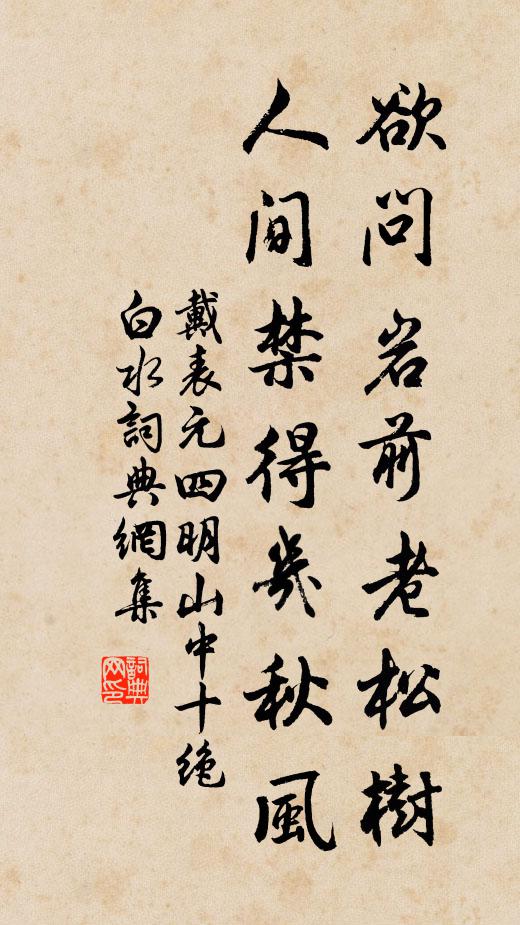 欲問岩前老松樹
人间禁得幾秋風
戴表元四明山中十绝
白水詞典網集
詞典网印